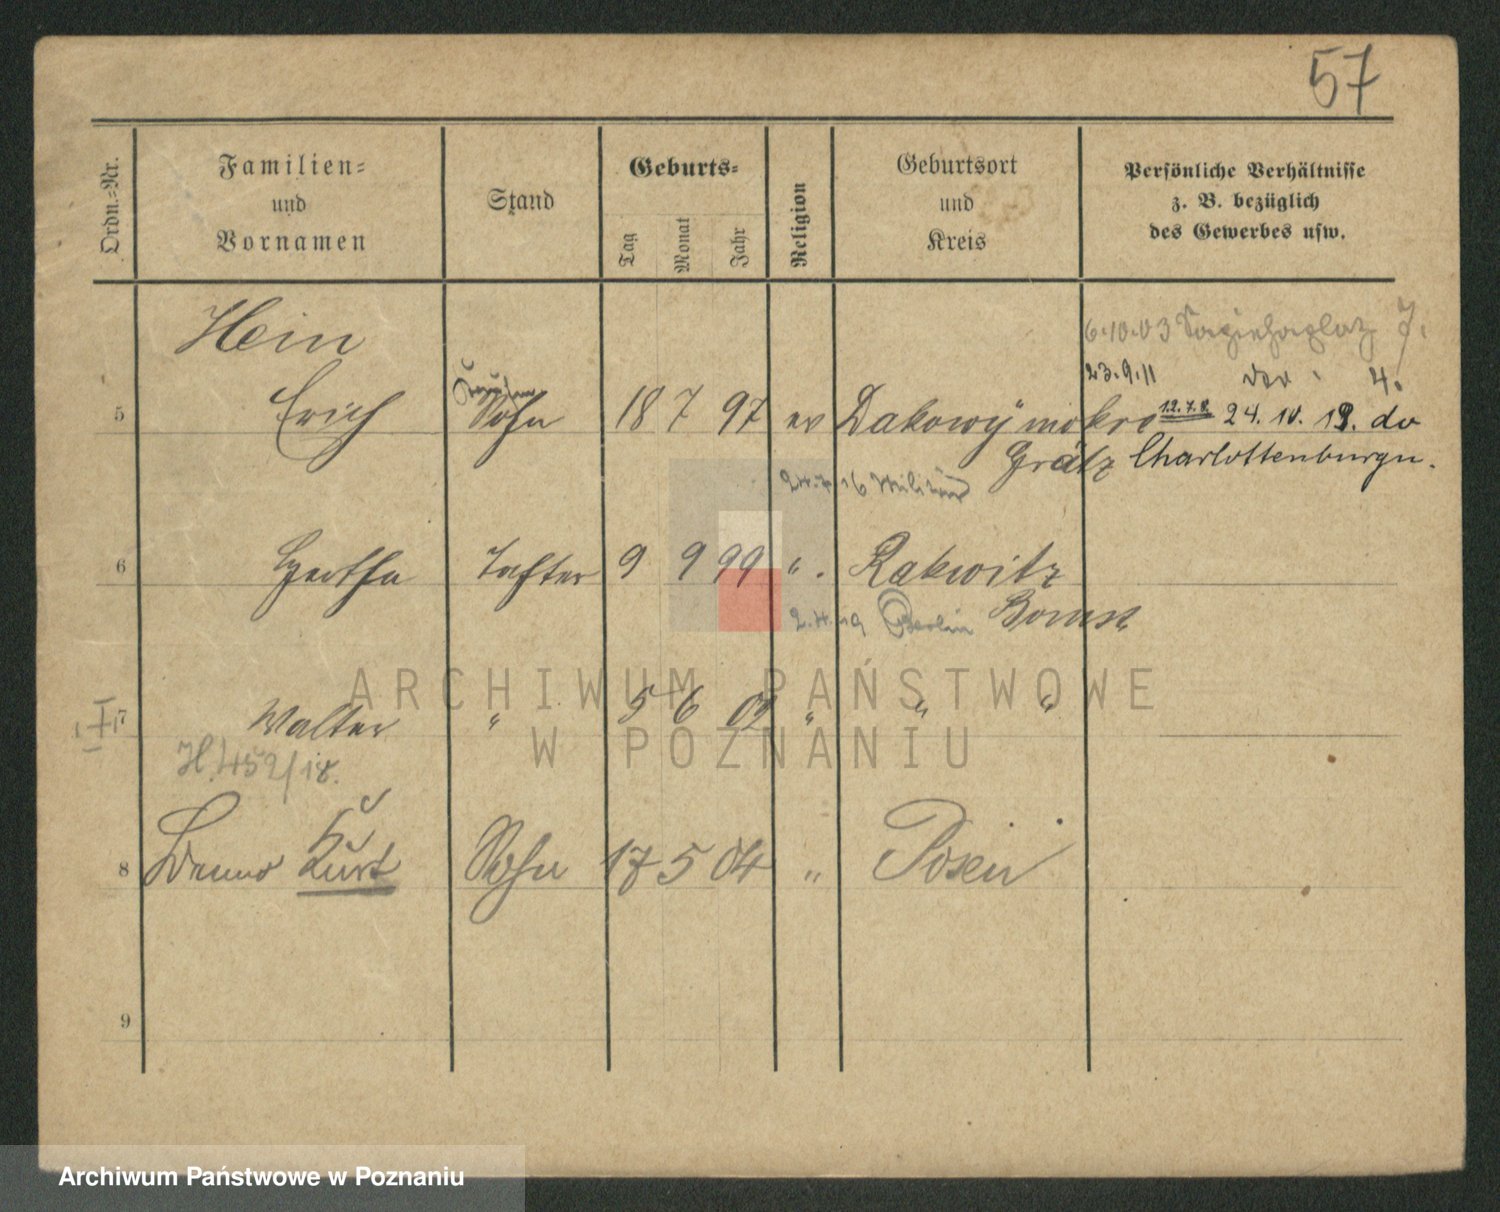 57
Ordn.-Nr.
Familien-
und
Vornamen
Stand
Geburts-
Tag
Monat
Jahr
Religion
Geburtsort
und
Kreis
Persönliche Verhältnisse
z. B. bezüglich
des Gewerbes usw.
Hein
6.10.03 Sapiehaplatz 7.
23.9.11 4.
5 Erich Sohn 18 7 97 ev Dakowy mokre 24. 10. 13. do
Grätz Charlottenburgu.
16 Militär
6 Hertha Tochter 9 9 99 " Rakwitz
2.4.19 Berlin Bomst
7 Walter " 5 6 02 " " "
H.452/18.
8 Benno Kurt Sohn 17 5 04 " Posen
9
ARCHIWUM PAŃSTWOWE
W POZNANIU
Archiwum Państwowe w Poznaniu